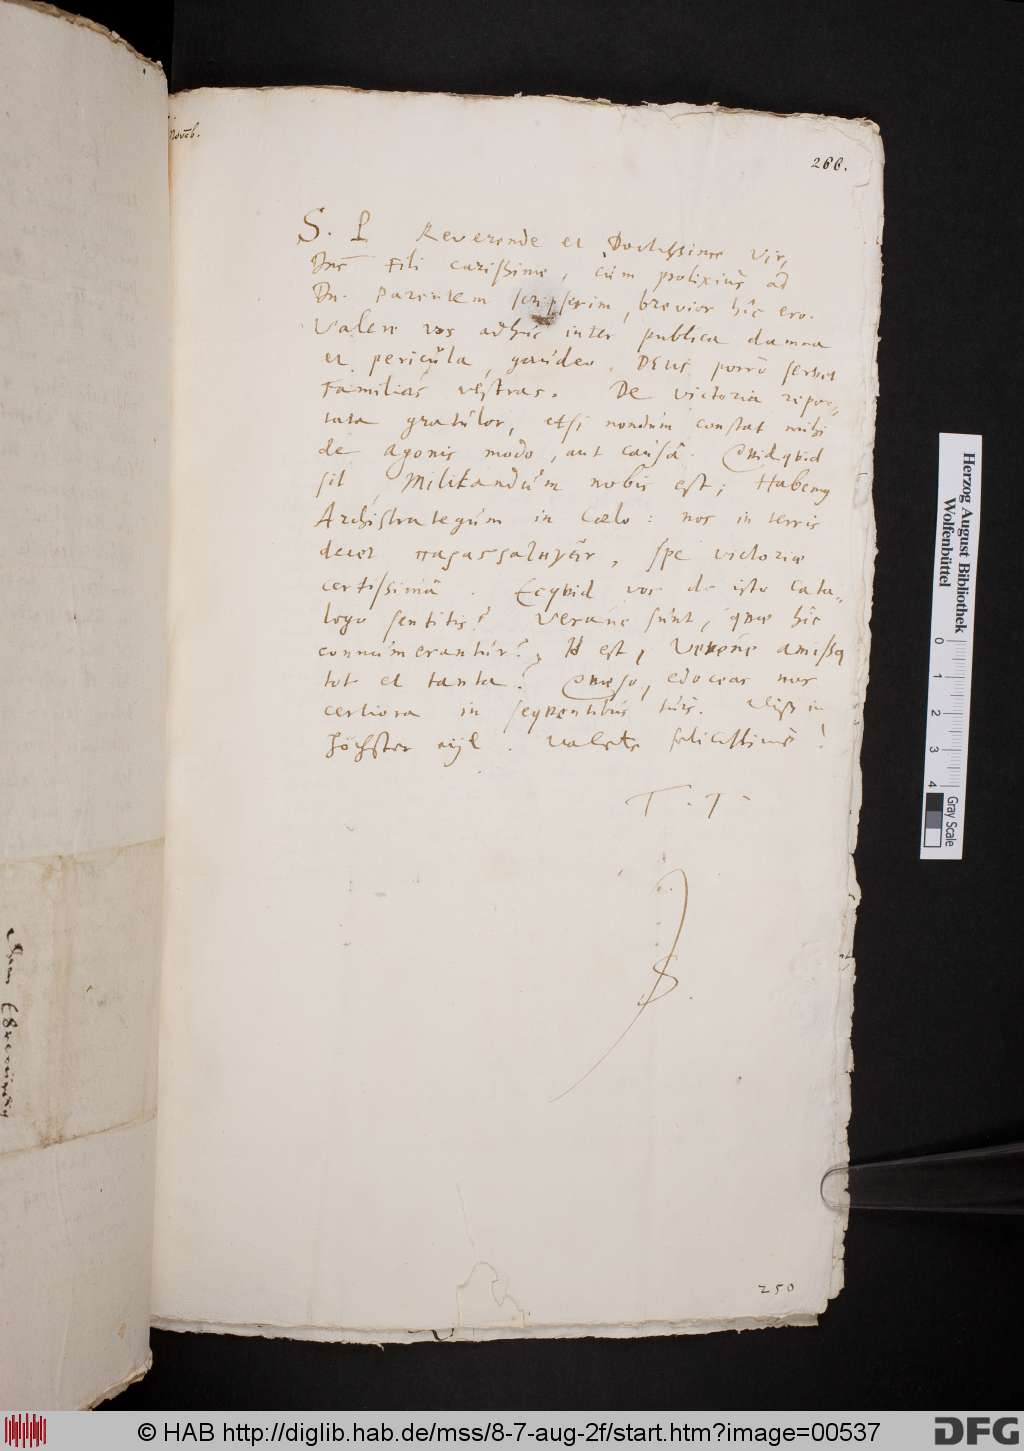 Novēb.
266.
S. P Reverende et Doctissime Vir,
Fili carissime, cùm prolixiùs ad
Dn. Parentem scripserim, brevior hîc ero.
Valere vos adhúc inter publica damna
et pericúla, gaúdeo. DEUS porrò servet
Familias vestras. De victoria repor-
tata gratúlor, etsi nondúm constat mihi
de agonis modo, aut caúsâ. Quidquid
sit, Militandúm nobis est; Habemus
Archistrategúm in Cœlo: nos in terris
decet , spe victoriæ
certissimâ. Ecquid vos de isto Cata-
logo sentitis? Veráne súnt, quæ hîc
connúmerantúr? Id est, Veréne amissa
tot et tanta? Quæso, edoceas nos
certiora in sequentibús túis. in
höchster eyl. Valete felicissimè!
T. T
250
Herzog August Bibliothek
Wolfenbüttel
0 1 2 3 4
Gray Scale
© HAB http://diglib.hab.de/mss/8-7-aug-2f/start.htm?image=00537
DFG